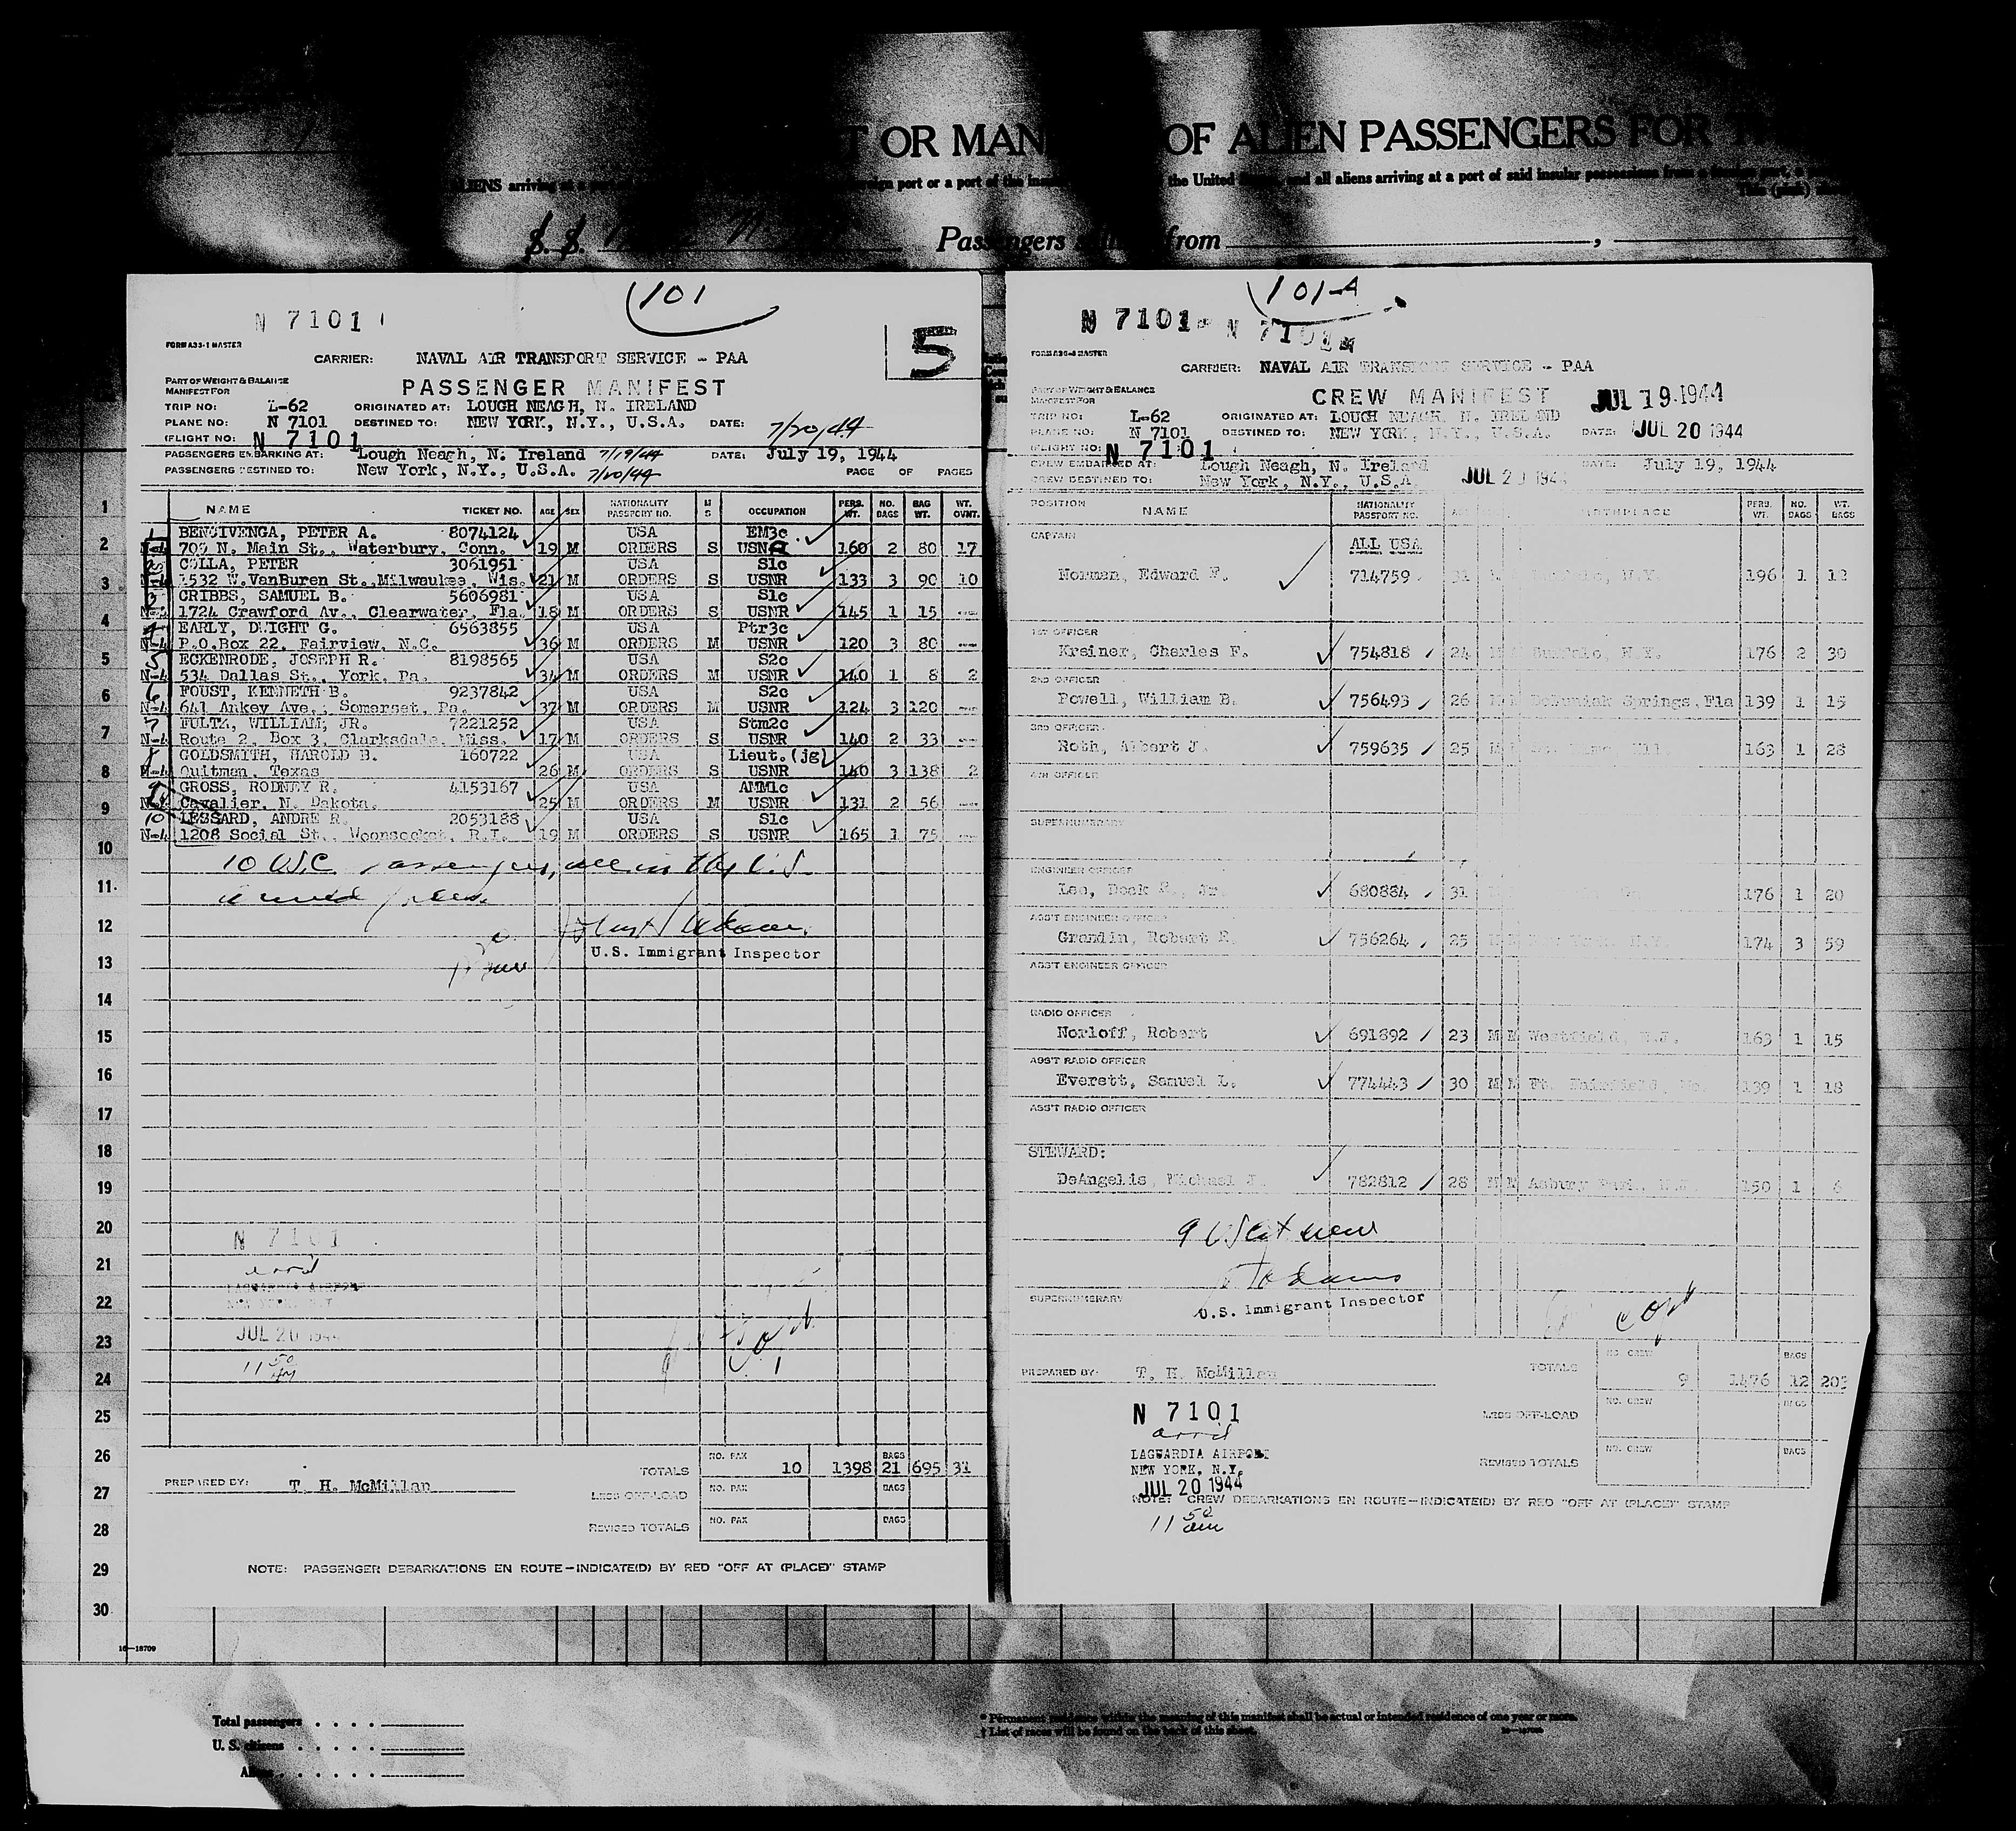 T OR MAN OF ALIEN PASSENGERS FOR
ALIENS arriving at a port or a port of the the United and all aliens arriving at a port of said insular possessions from a
S. S. Passengers from
101
N 7101
5
FORM A33-1 MASTER
CARRIER: NAVAL AIR TRANSPORT SERVICE - PAA
PART OF WEIGHT & BALANCE
MANIFEST FOR
PASSENGER MANIFEST
TRIP NO: L-62 ORIGINATED AT: LOUGH NEAGH, N. IRELAND
PLANE NO: N 7101 DESTINED TO: NEW YORK, N.Y., U.S.A. DATE: 7/20/44
(FLIGHT NO: N 7101
PASSENGERS EMBARKING AT: Lough Neagh, N. Ireland 7/19/44 DATE: July 19, 1944
PASSENGERS DESTINED TO: New York, N.Y., U.S.A. 7/20/44 PAGE OF PAGES
NAME TICKET NO. AGE SEX NATIONALITY PASSPORT NO. M S OCCUPATION PERS. WT. NO. BAGS BAG WT. WT. OVNT.
1 BENCIVENGA, PETER A. 8074124 USA EM3c
N-4 709 N. Main St., Waterbury, Conn. 19 M ORDERS S USNR 160 2 80 17
2 COLLA, PETER 3061951 USA S1c
N-4 1532 W.VanBuren St.,Milwaukee, Wis. 21 M ORDERS S USNR 133 3 90 10
3 CRIBBS, SAMUEL B. 5606981 USA S1c
N-4 1724 Crawford Av., Clearwater, Fla. 18 M ORDERS S USNR 145 1 15 --
4 EARLY, DWIGHT G. 6563855 USA Ptr3c
N-4 P.O.Box 22, Fairview, N.C. 36 M ORDERS M USNR 120 3 80 --
5 ECKENRODE, JOSEPH R. 8198565 USA S2c
N-4 534 Dallas St., York, Pa. 34 M ORDERS M USNR 140 1 8 2
6 FOUST, KENNETH B. 9237842 USA S2c
N-4 641 Ankey Ave., Somerset, Pa. 37 M ORDERS M USNR 124 3 120 --
7 FULTZ, WILLIAM, JR. 7221252 USA Stm2c
N-4 Route 2, Box 3, Clarksdale, Miss. 17 M ORDERS S USNR 140 2 33 --
8 GOLDSMITH, HAROLD B. 160722 USA Lieut.(jg)
N-4 Quitman, Texas 26 M ORDERS S USNR 140 3 138 2
9 GROSS, RODNEY R. 4153167 USA AMM1c
N-4 Cavalier, N. Dakota. 25 M ORDERS M USNR 131 2 56 --
10 LESSARD, ANDRE R. 2053188 USA S1c
N-4 1208 Social St., Woonsocket, R.I. 19 M ORDERS S USNR 165 1 75 --
10 U.S.C. passengers, all in the U.S.
armed forces.
U.S. Immigrant Inspector
N 7101
arrd
LAGUARDIA AIRPORT
NEW YORK, N.Y.
JUL 20 1944
11 50 am
TOTALS NO. PAX 10 1398 BAGS 21 695 31
PREPARED BY: T. H. McMillan
LESS OFF-LOAD NO. PAX BAGS
REVISED TOTALS NO. PAX BAGS
NOTE: PASSENGER DEBARKATIONS EN ROUTE-INDICATE(D) BY RED "OFF AT (PLACE)" STAMP
101-A
N 7101 N 7101
FORM A33-2 MASTER
CARRIER: NAVAL AIR TRANSPORT SERVICE - PAA
PART OF WEIGHT & BALANCE
MANIFEST FOR
CREW MANIFEST JUL 19 1944
TRIP NO: L-62 ORIGINATED AT: LOUGH NEAGH, N. IRELAND
PLANE NO: N 7101 DESTINED TO: NEW YORK, N.Y., U.S.A. DATE: JUL 20 1944
(FLIGHT NO: N 7101
CREW EMBARKED AT: Lough Neagh, N. Ireland DATE: July 19, 1944
CREW DESTINED TO: New York, N.Y., U.S.A. JUL 20 1944
POSITION NAME NATIONALITY PASSPORT NO. BIRTHPLACE PERS. WT. NO. BAGS WT. BAGS
CAPTAIN ALL USA
Norman, Edward F. 714759 31 Buffalo, N.Y. 196 1 12
1ST OFFICER
Kreiner, Charles F. 754818 24 Buffalo, N.Y. 176 2 30
2ND OFFICER
Powell, William B. 756493 26 DeFuniak Springs, Fla 139 1 15
3RD OFFICER
Roth, Albert J. 759635 25 163 1 28
AIR OFFICER
SUPERNUMERARY
ENGINEER OFFICER
Lee, Dock S., Jr. 680884 31 176 1 20
ASS'T ENGINEER OFFICER
Grandin, Robert E. 756264 25 New York, N.Y. 174 3 59
ASS'T ENGINEER OFFICER
RADIO OFFICER
Norloff, Robert 691892 23 M M Westfield, N.J. 163 1 15
ASS'T RADIO OFFICER
Everett, Samuel L. 774443 30 M M Ft. Fairfield, Me. 139 1 18
ASS'T RADIO OFFICER
STEWARD:
DeAngelis, Michael J. 782812 28 M M Asbury Park, N.J. 150 1 6
9 US Cit crew
Adams
U.S. Immigrant Inspector
SUPERNUMERARY
PREPARED BY: T. H. McMillan TOTALS NO. CREW 9 1476 BAGS 12 203
LESS OFF-LOAD NO. CREW BAGS
REVISED TOTALS NO. CREW BAGS
N 7101
arrd
LAGUARDIA AIRPORT
NEW YORK, N.Y.
JUL 20 1944
NOTE: CREW DEBARKATIONS EN ROUTE-INDICATE(D) BY RED "OFF AT (PLACE)" STAMP
11 50 am
1
2
3
4
5
6
7
8
9
10
11
12
13
14
15
16
17
18
19
20
21
22
23
24
25
26
27
28
29
30
16-18709
Total passengers
U. S. citizens
Aliens
* Permanent residence within the meaning of this manifest shall be actual or intended residence of one year or more.
† List of races will be found on the back of this sheet.